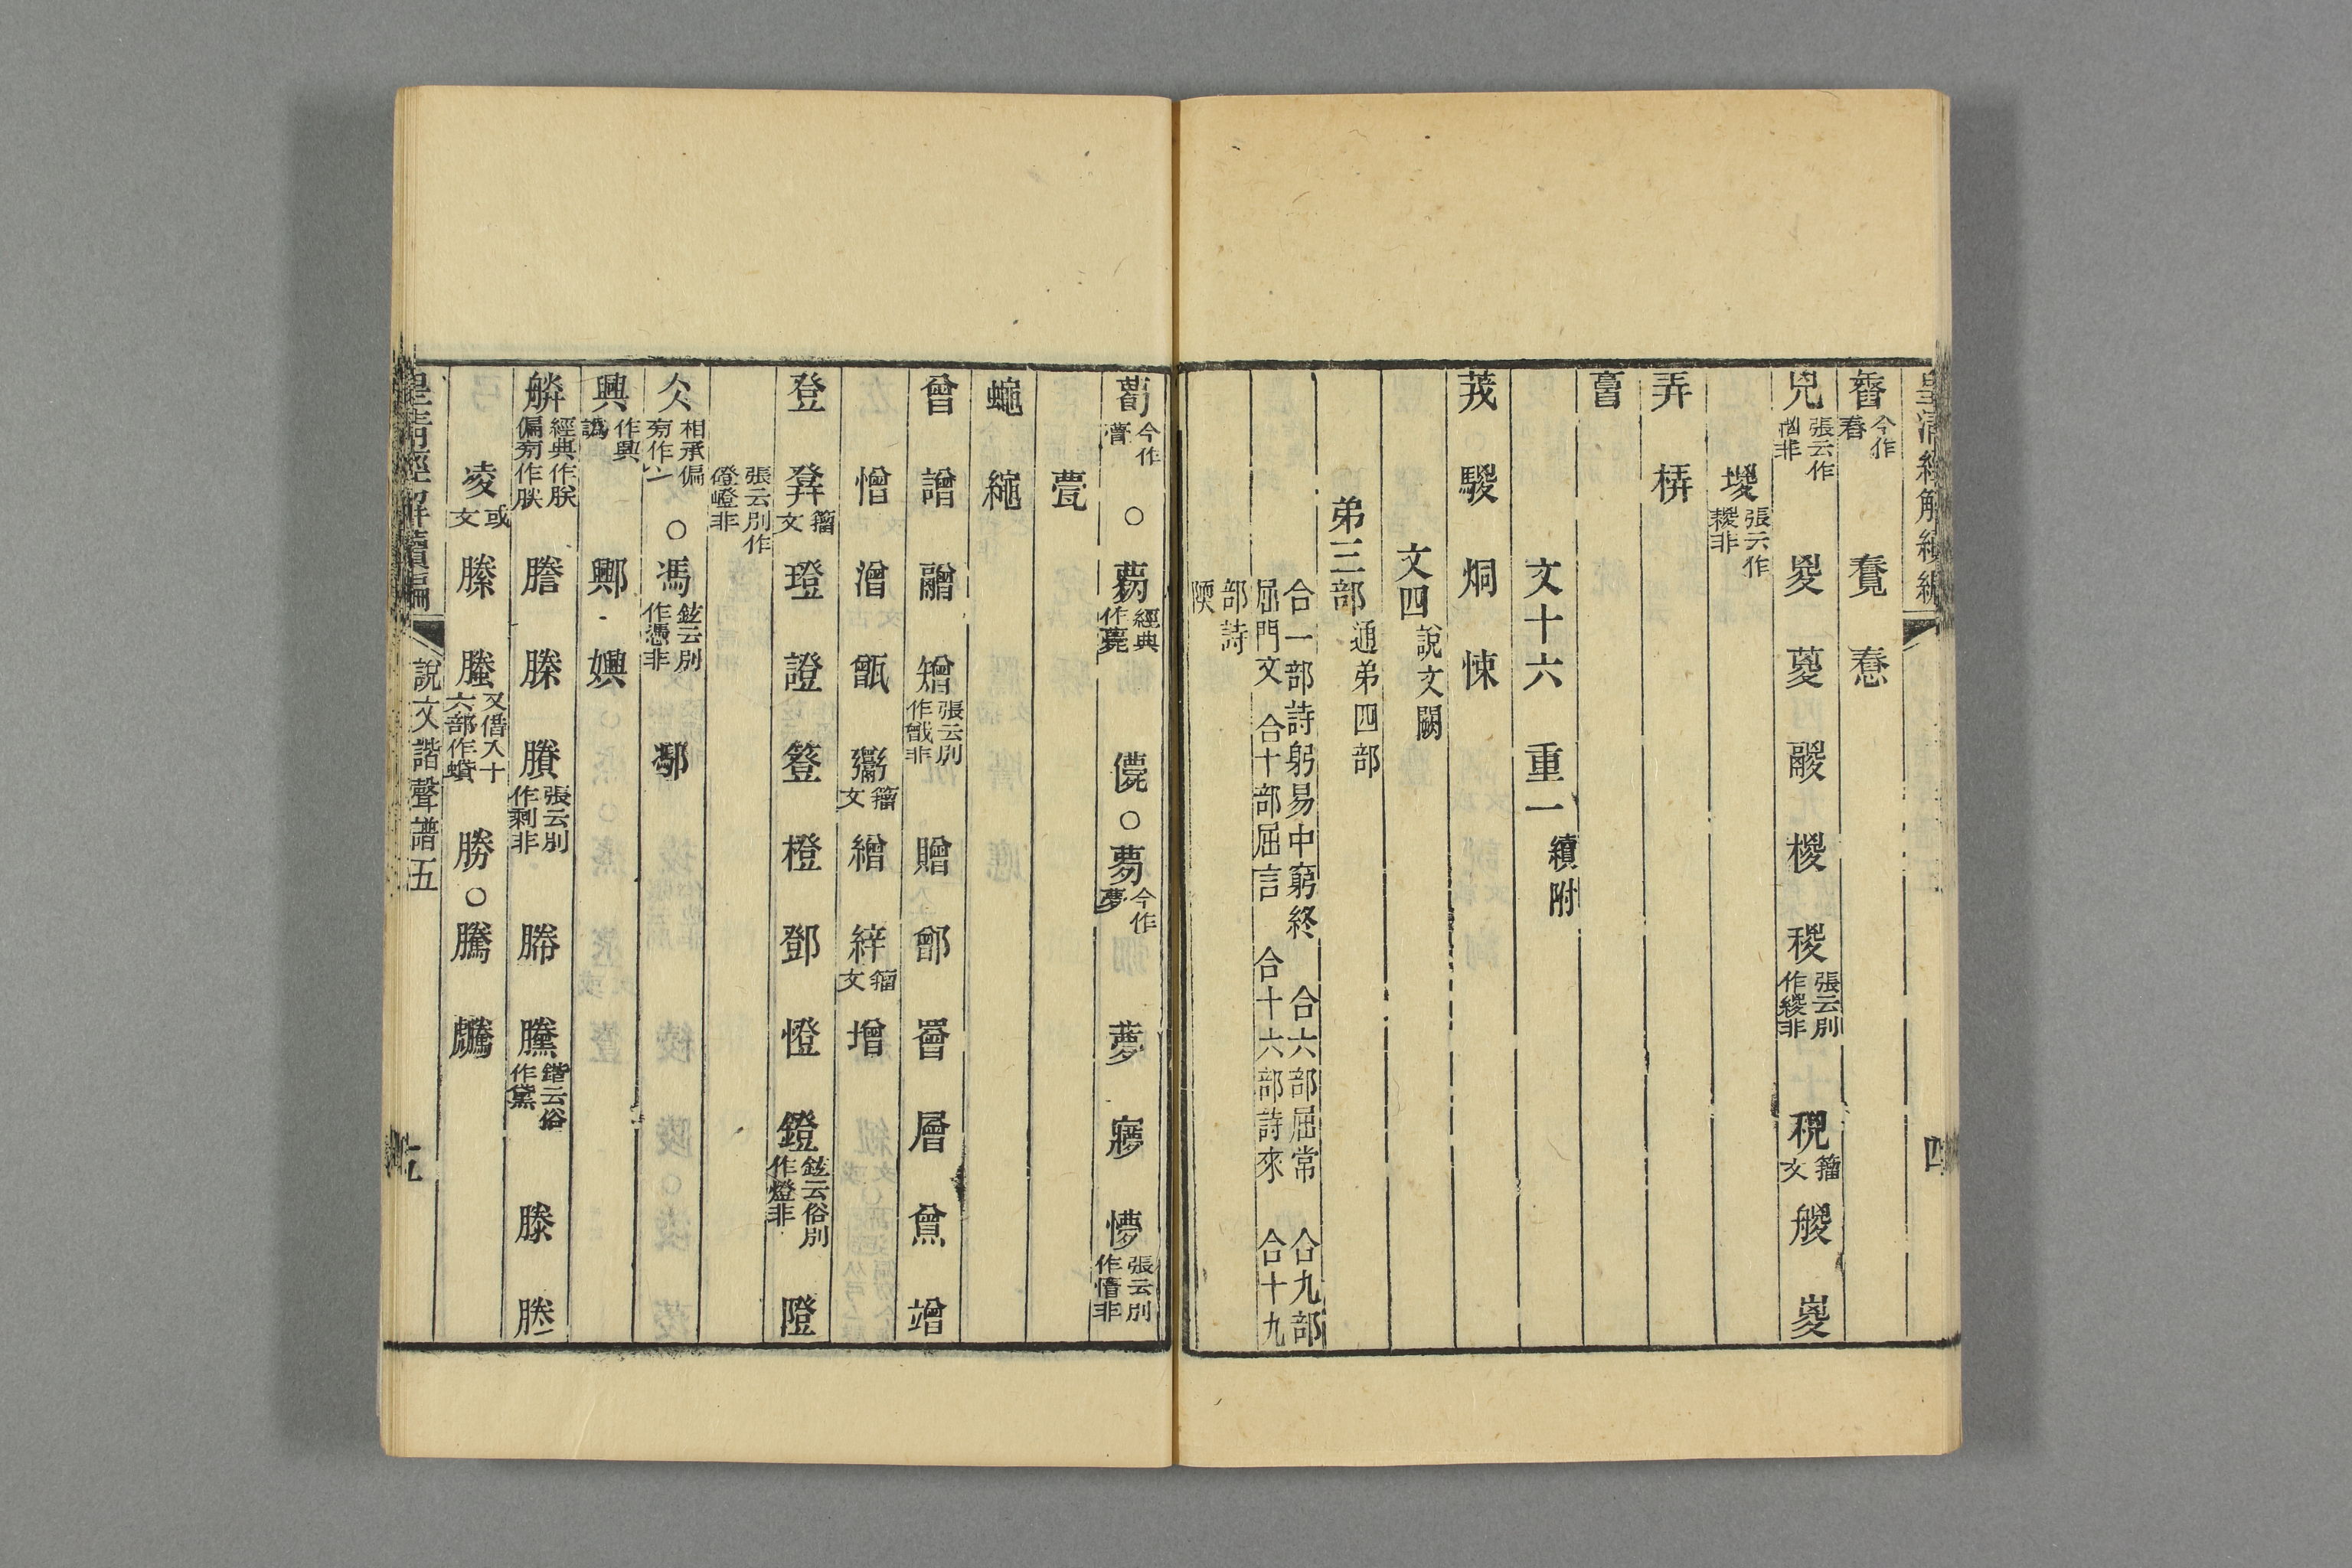 皇清經解續編
舂 今作舂 惷
兇 張云作凶非 㚇 葼 鬷 椶 稯 張云別作緵非 艐 嵏
堫 張云作䅜非
弄 梇
文十六 重一 續附
茙 騣 烔 悚
文四 說文闕
弟三部 通弟四部
合一部詩躬易中窮終 合六部屈常 合九部
屈門文 合十部屈言 合十六部詩來 合十九
部詩
陾
瞢 今作瞢 ○ 薨 經典作薨 儚 ○ 夢 今作夢 㝱 懜 張云別作懵非
甍
蠅 繩
曾 譖 矰 張云別作㬝非 贈 鄫 罾 層 竲
憎 潧 甑 籀文 繒 縡 籀文 增
登 籀文 璒 證 簦 橙 鄧 憕 鐙 鉉云俗別作燈非 隥
張云別作磴嶝非
仌 相承偏旁作冫 ○ 馮 鉉云別作憑非 鄸
興 作興譌 嬹
朕 經典作朕偏旁作朕 謄 榺 賸 張云別作剩非 幐 黱 鍇云俗作黛 滕 塍
凌 或文 縢 螣 又借入十六部作蟘 勝 ○ 騰
皇清經解續編 說文諧聲譜五